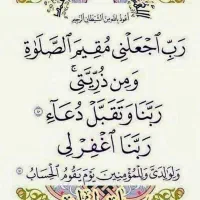 أعوذ بالله من الشيطان الرجيم
رَبِّ ٱجۡعَلۡنِي مُقِيمَ ٱلصَّلَوٰةِ
وَمِن ذُرِّيَّتِيۚ
رَبَّنَا وَتَقَبَّلۡ دُعَآءِ ٤٠
رَبَّنَا ٱغۡفِرۡ لِي
وَلِوَٰلِدَيَّ وَلِلۡمُؤۡمِنِينَ يَوۡمَ يَقُومُ ٱلۡحِسَابُ ٤١